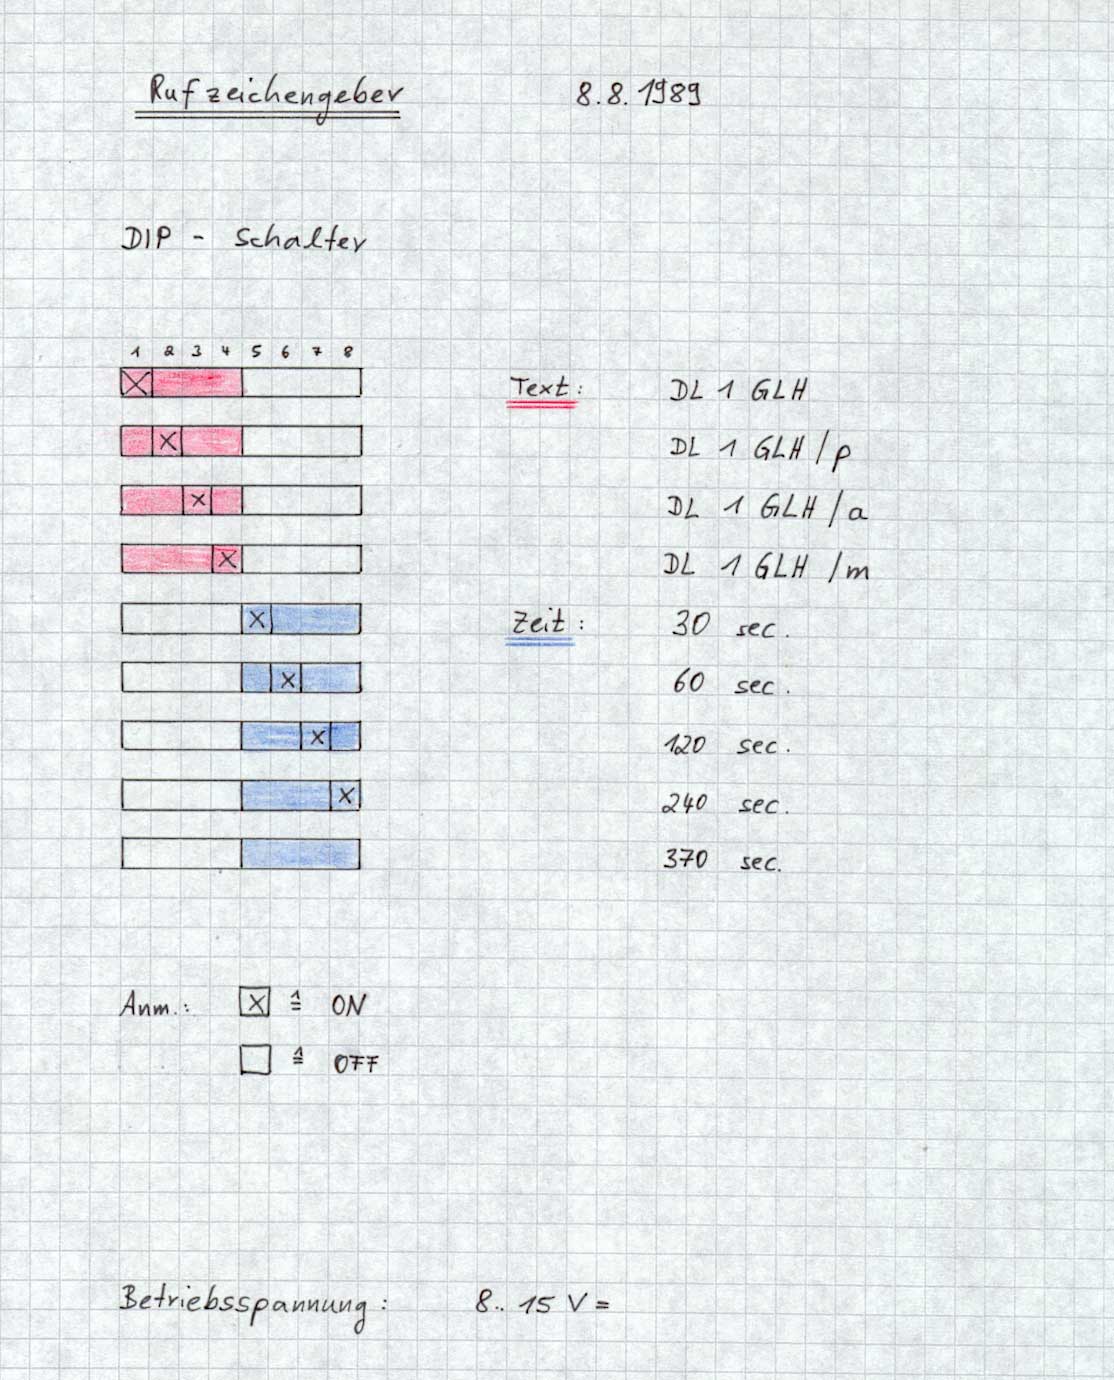 Rufzeichengeber 8.8.1989
DIP - Schalter
1 2 3 4 5 6 7 8
Text: DL 1 GLH
DL 1 GLH /p
DL 1 GLH /a
DL 1 GLH /m
Zeit: 30 sec.
60 sec.
120 sec.
240 sec.
370 sec.
Anm.: ☒ ≙ ON
☐ ≙ OFF
Betriebsspannung: 8.. 15 V =